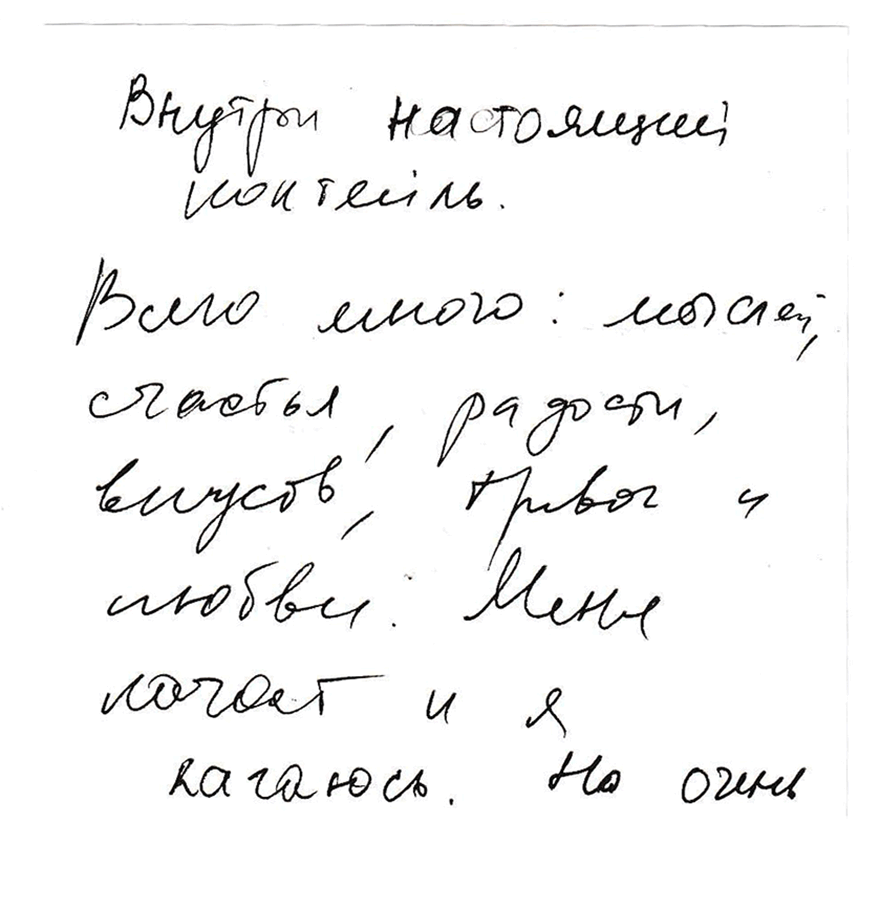 Внутри настоящий
коктейль.
Всего много: мыслей,
счастья, радости,
вкусов, тревог и
любви. Меня
качает и я
качаюсь. Но очень